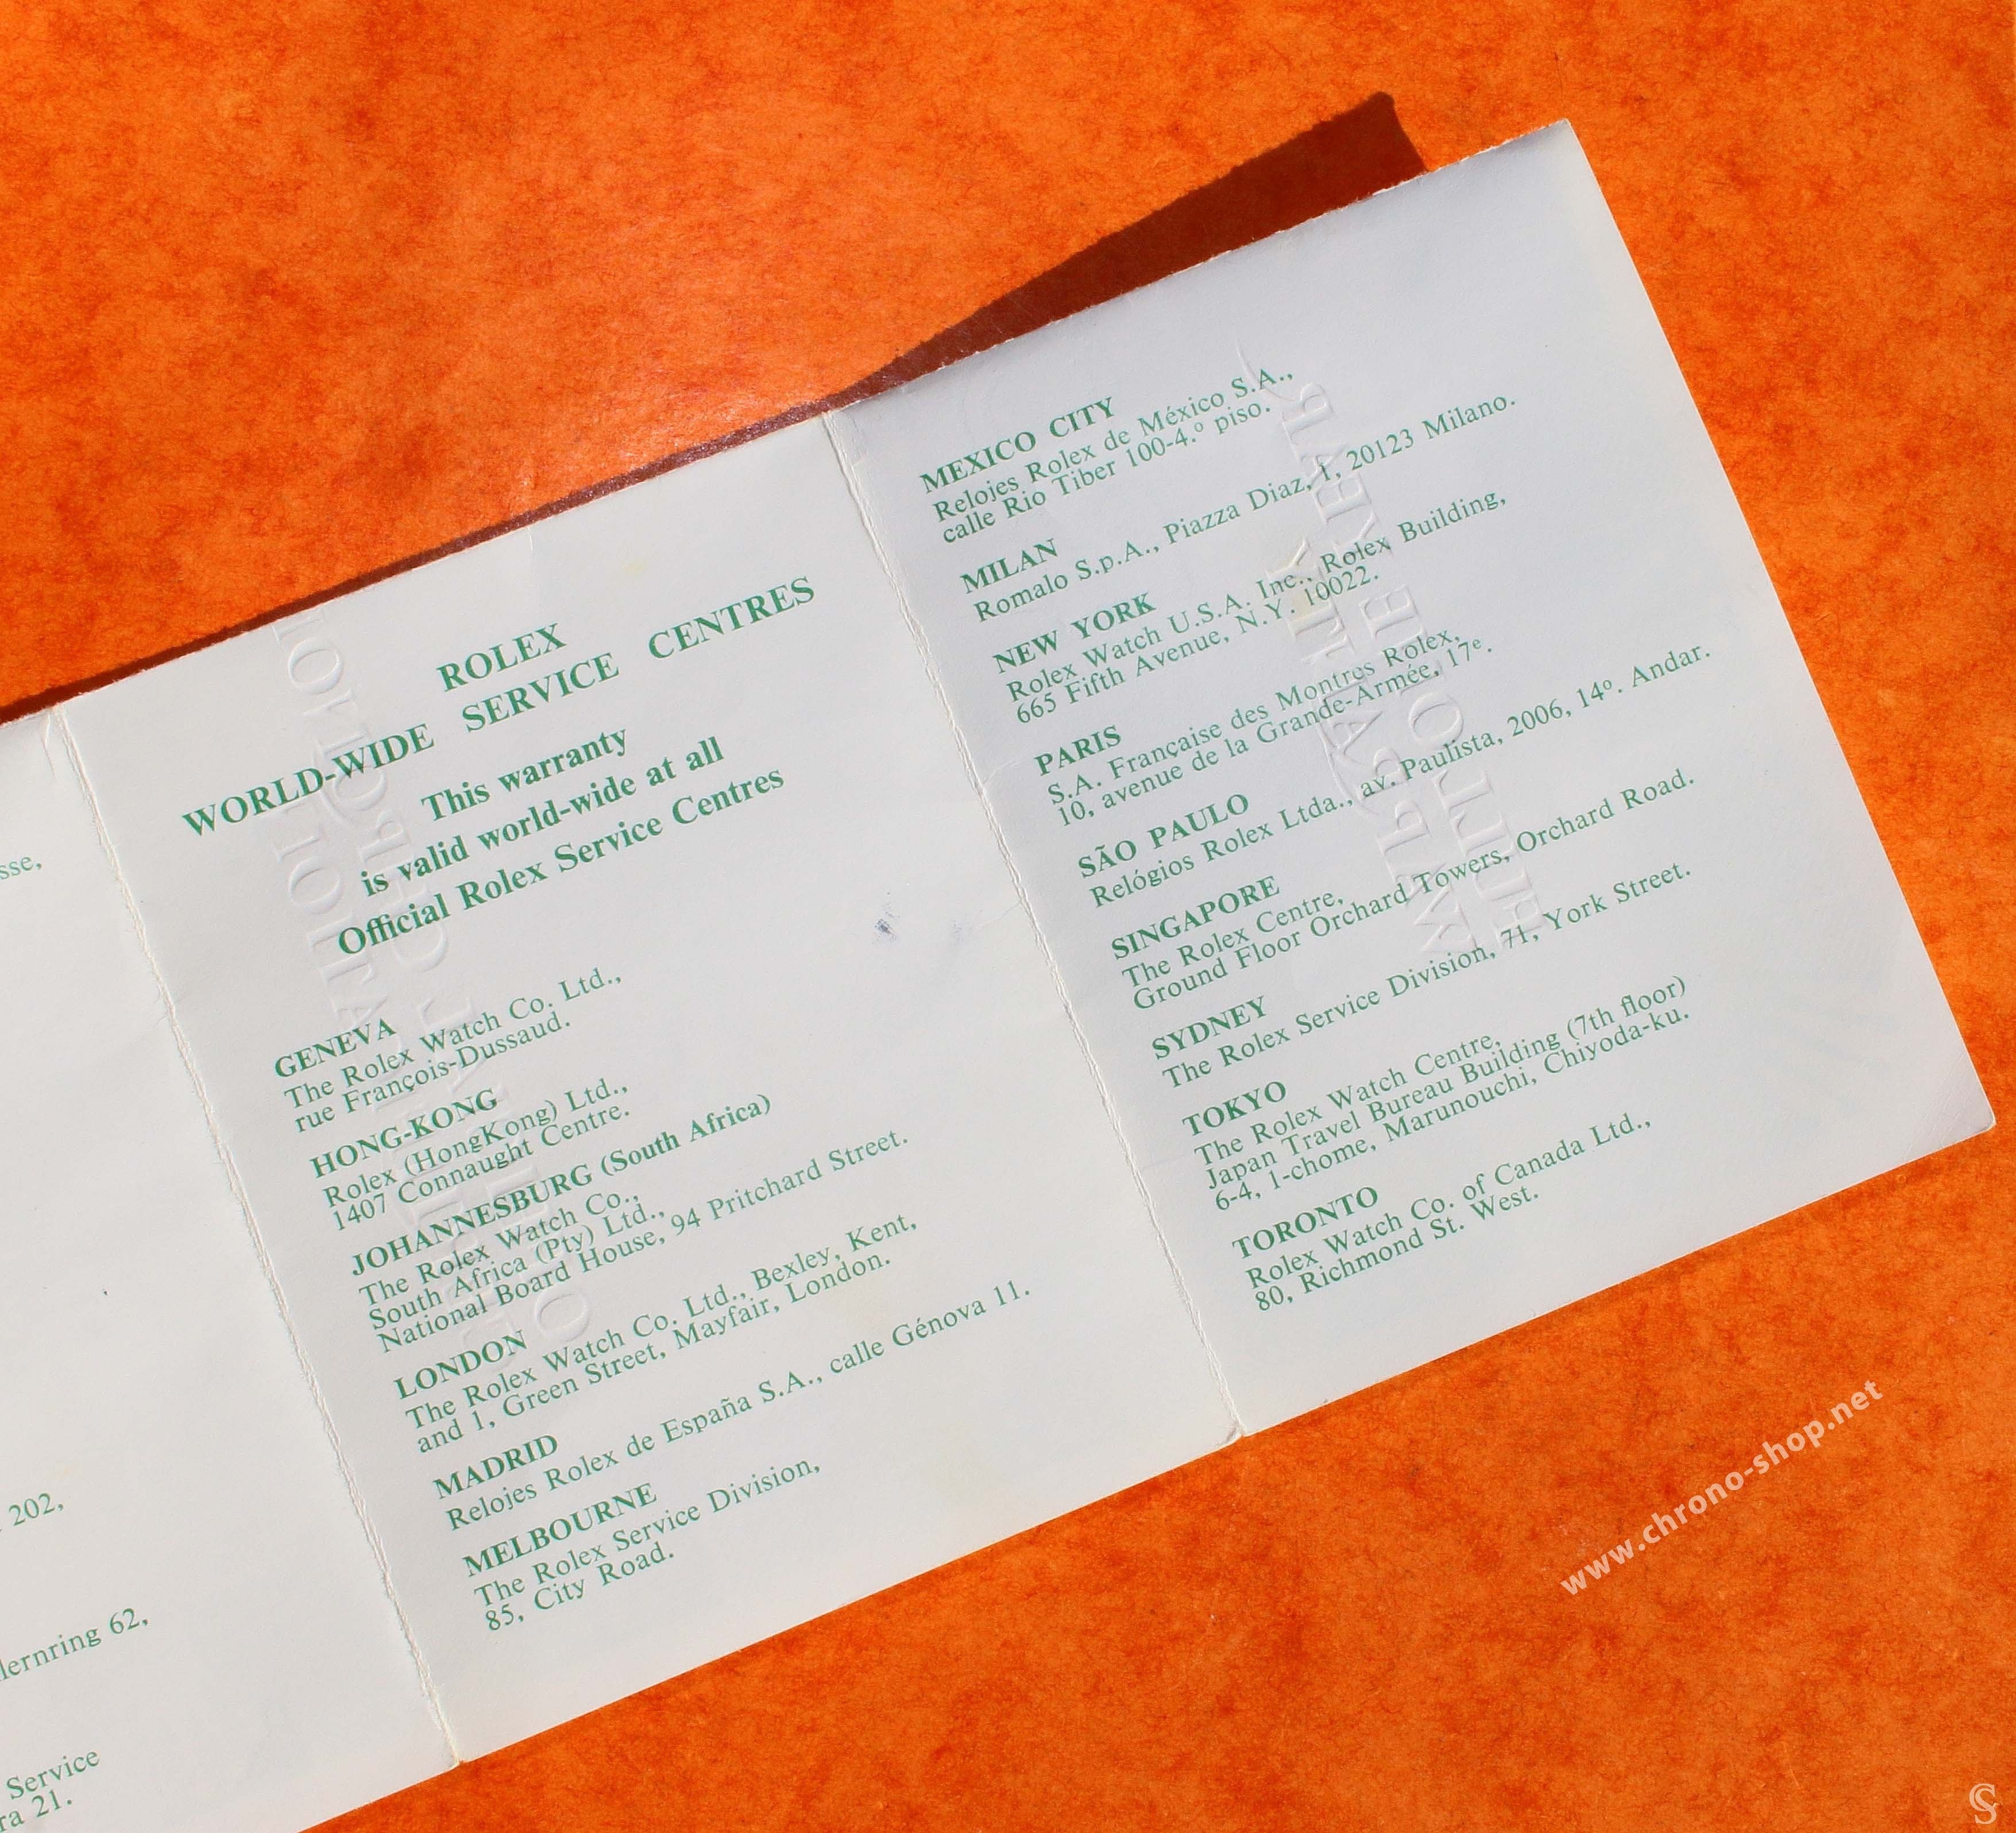 sse,
202,
lernring 62,
Service
ra 21.
ROLEX
WORLD-WIDE SERVICE CENTRES
This warranty
is valid world-wide at all
Official Rolex Service Centres
GENEVA
The Rolex Watch Co. Ltd.,
rue François-Dussaud.
HONG-KONG
Rolex (HongKong) Ltd.,
1407 Connaught Centre.
JOHANNESBURG (South Africa)
The Rolex Watch Co.,
South Africa (Pty) Ltd.,
National Board House, 94 Pritchard Street.
LONDON
The Rolex Watch Co. Ltd., Bexley, Kent,
and 1, Green Street, Mayfair, London.
MADRID
Relojes Rolex de España S.A., calle Génova 11.
MELBOURNE
The Rolex Service Division,
85, City Road.
MEXICO CITY
Relojes Rolex de México S.A.,
calle Rio Tiber 100-4.º piso.
MILAN
Romalo S.p.A., Piazza Diaz, 1, 20123 Milano.
NEW YORK
Rolex Watch U.S.A. Inc., Rolex Building,
665 Fifth Avenue, N.Y. 10022.
PARIS
S.A. Française des Montres Rolex,
10, avenue de la Grande-Armée, 17e.
SÃO PAULO
Relógios Rolex Ltda., av. Paulista, 2006, 14º. Andar.
SINGAPORE
The Rolex Centre,
Ground Floor Orchard Towers, Orchard Road.
SYDNEY
The Rolex Service Division, 71, York Street.
TOKYO
The Rolex Watch Centre,
Japan Travel Bureau Building (7th floor)
6-4, 1-chome, Marunouchi, Chiyoda-ku.
TORONTO
Rolex Watch Co. of Canada Ltd.,
80, Richmond St. West.
www.chrono-shop.net